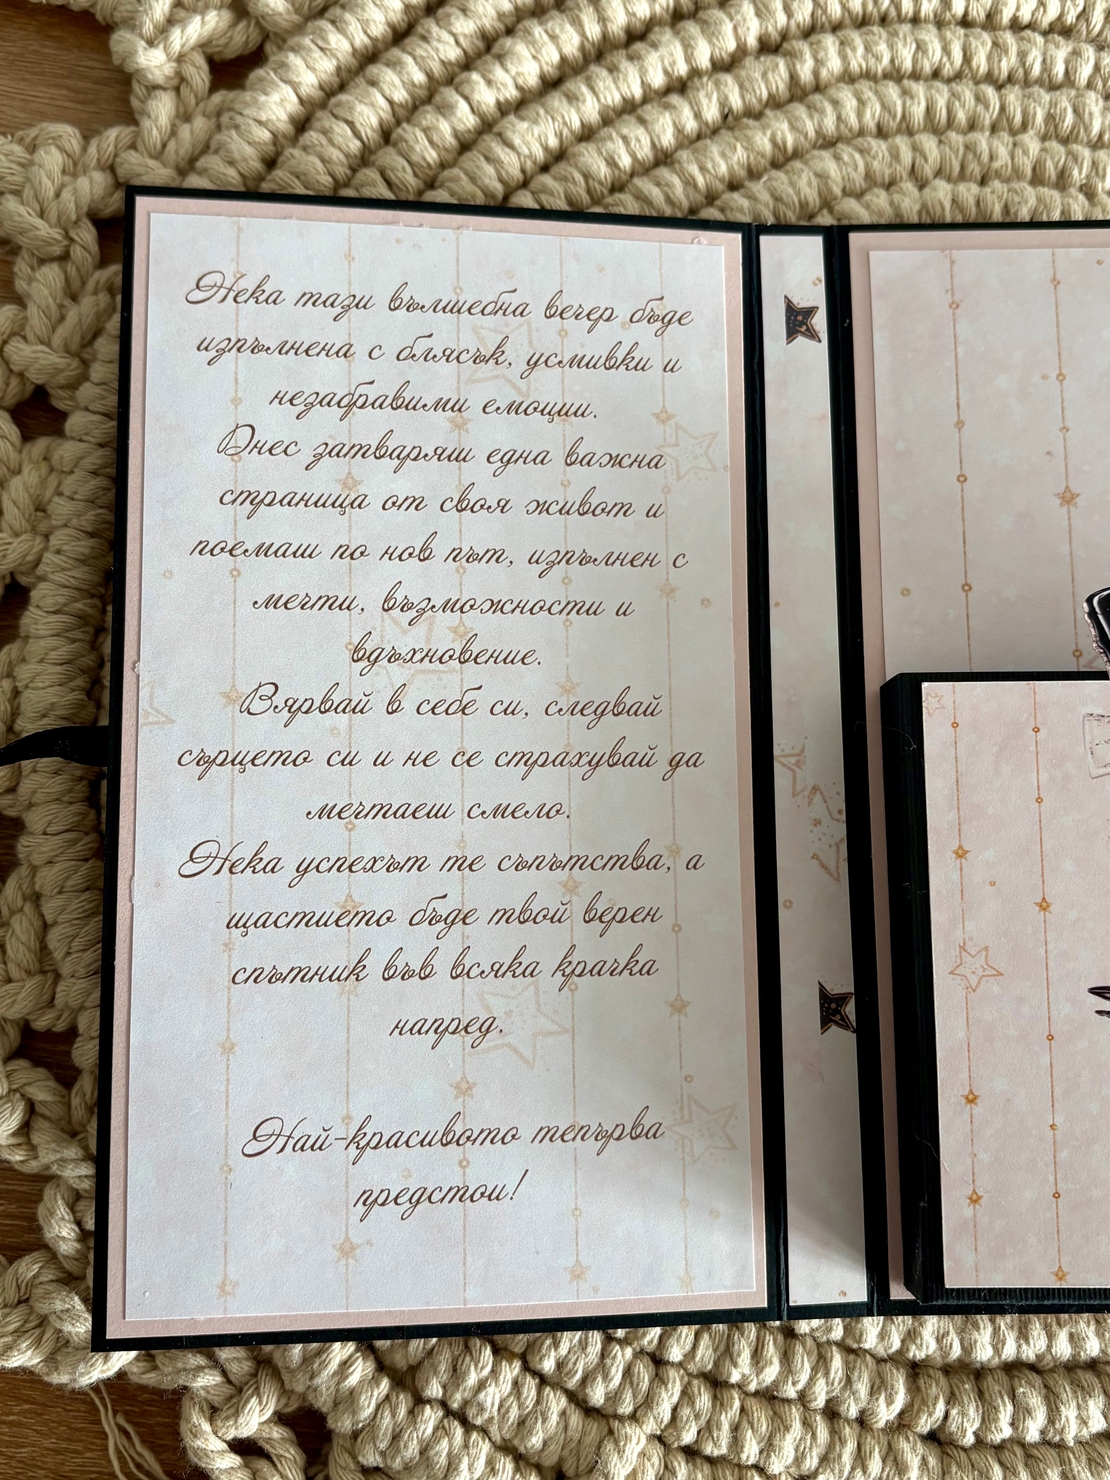 Нека тази вълшебна вечер бъде
изпълнена с блясък, усмивки и
незабравими емоции.
Днес затваряш една важна
страница от своя живот и
поемаш по нов път, изпълнен с
мечти, възможности и
вдъхновение.
Вярвай в себе си, следвай
сърцето си и не се страхувай да
мечтаеш смело.
Нека успехът те съпътства, а
щастието бъде твой верен
спътник във всяка крачка
напред.
Най-красивото тепърва
предстои!